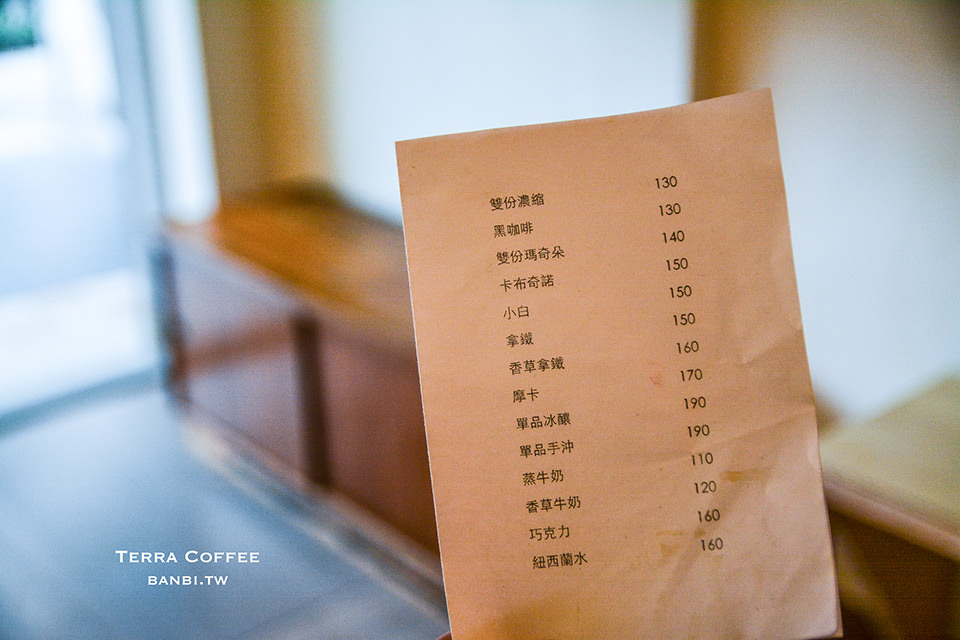 雙份濃縮 130
黑咖啡 130
雙份瑪奇朵 140
卡布奇諾 150
小白 150
拿鐵 150
香草拿鐵 160
摩卡 170
單品冰釀 190
單品手沖 190
蒸牛奶 110
香草牛奶 120
巧克力 160
紐西蘭水 160
TERRA COFFEE
BANBI.TW